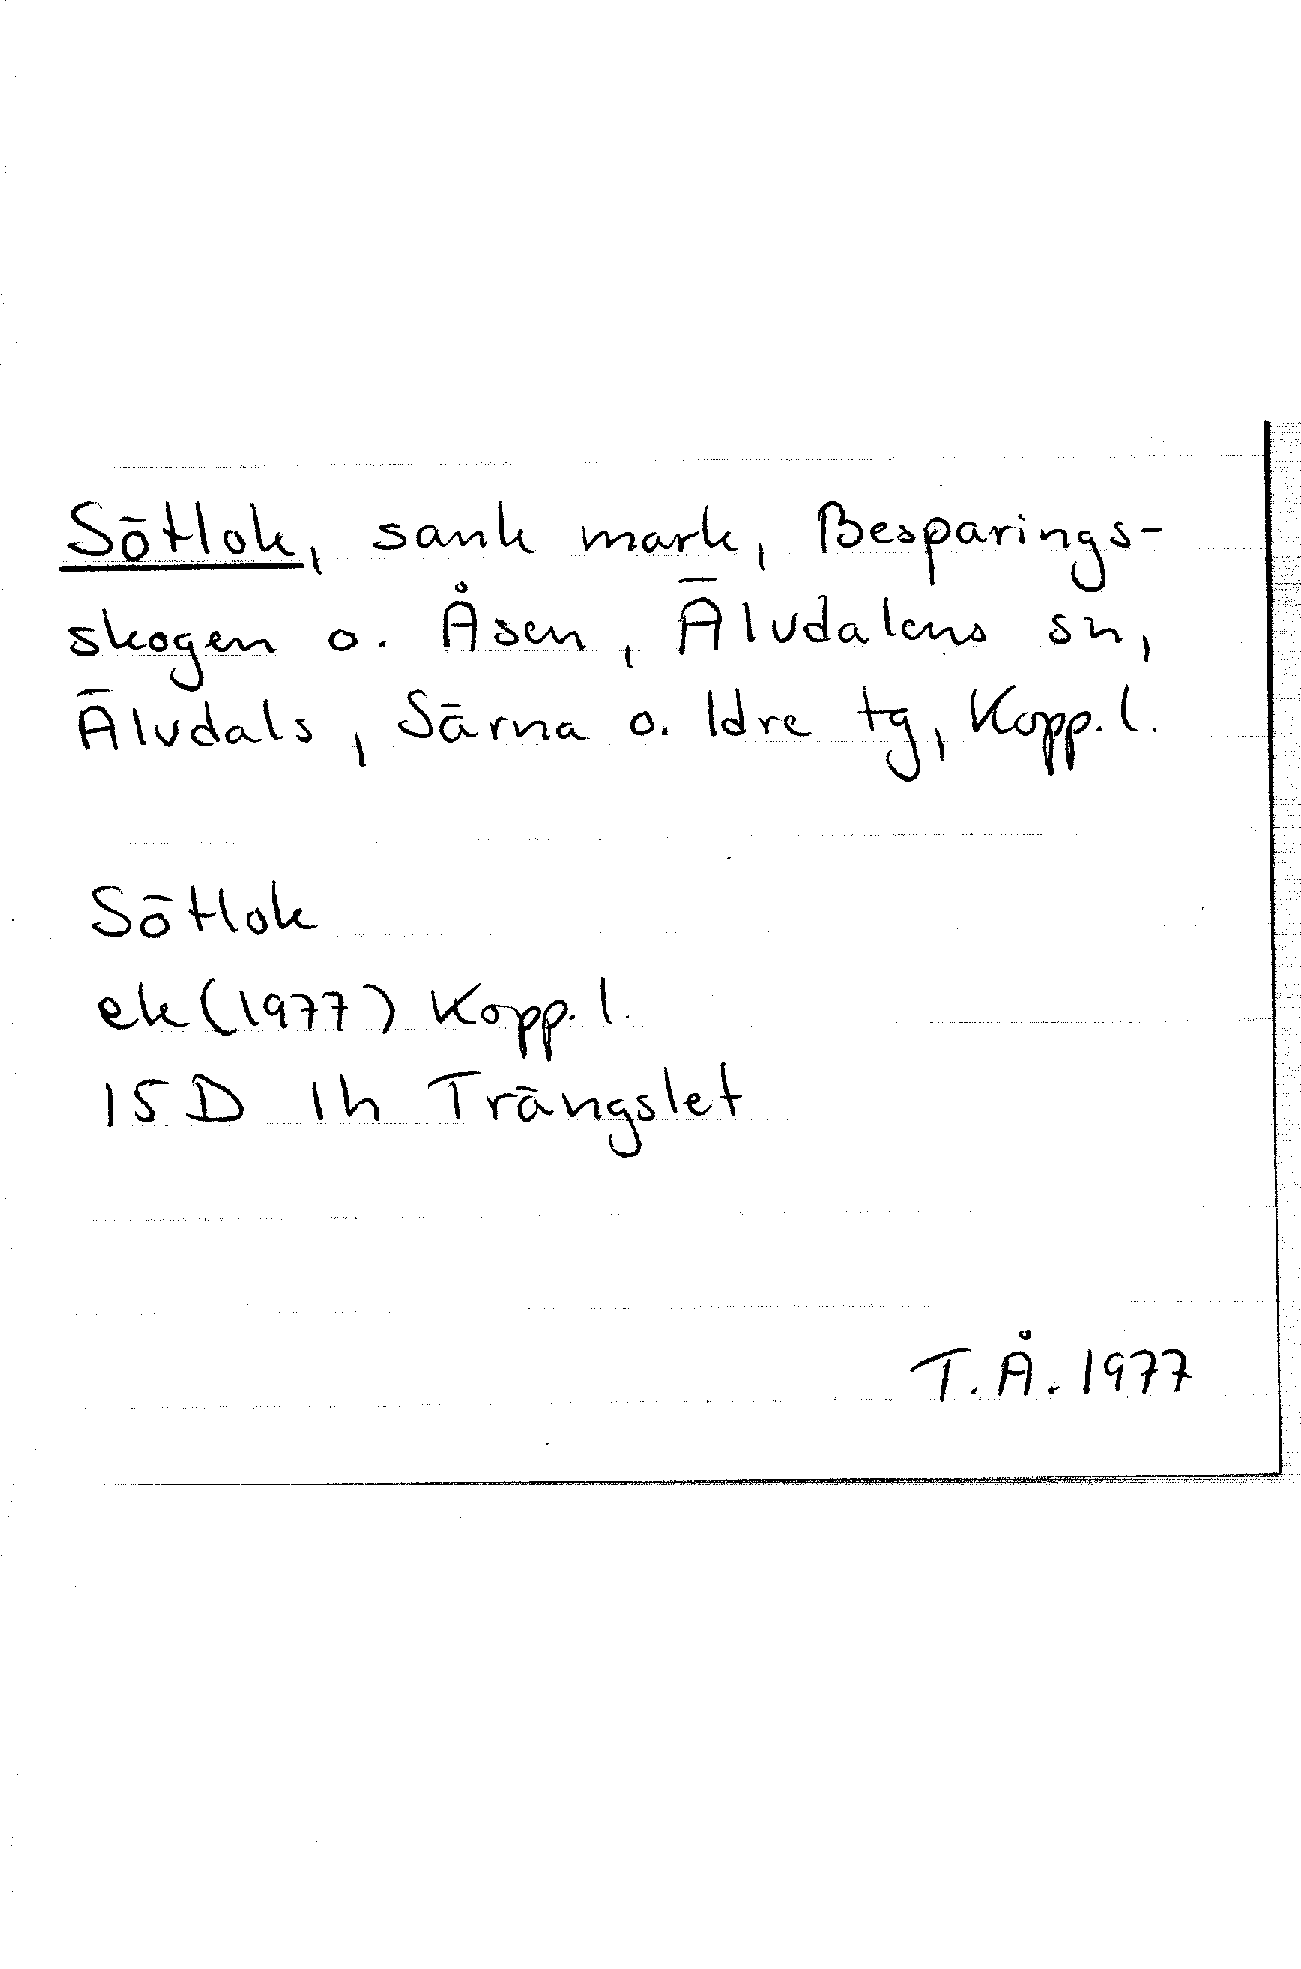 Sötlok, sank mark, Besparings-
skogen o. Åsen, Älvdalens sn,
Älvdals, Särna o. Idre tg, Kopp. l.
Sötlok
ek (1977) Kopp. l.
15D 1h Trängslet
T.Å. 1977